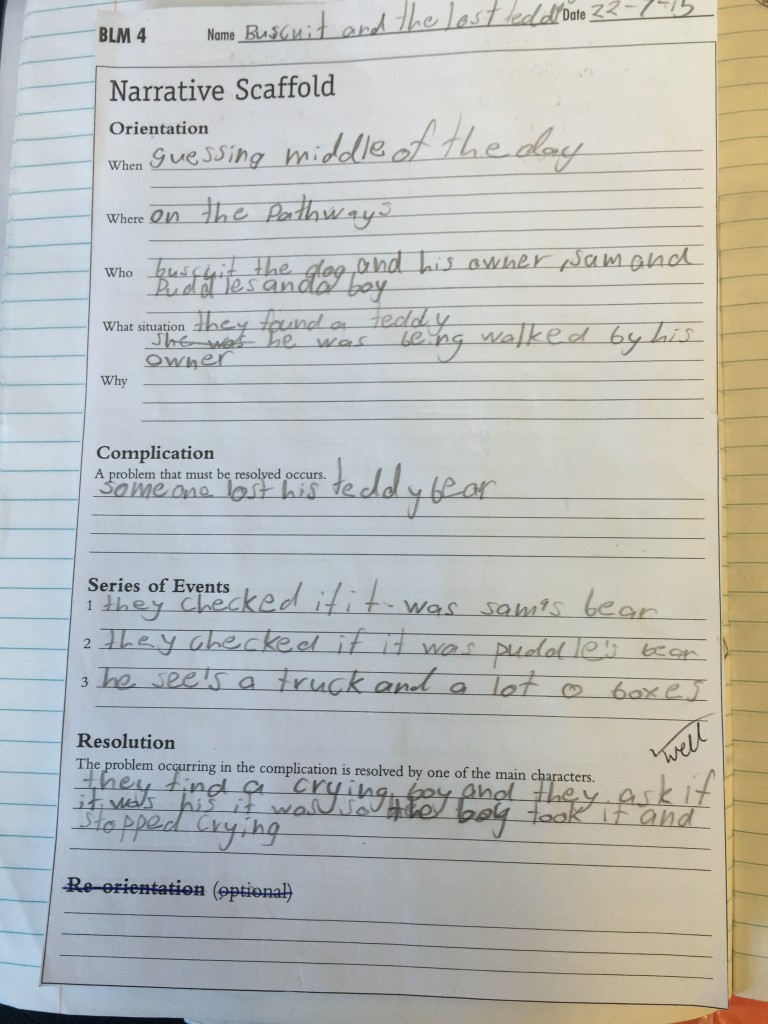 BLM 4 Name Buscuit and the lost teddy Date 22-7-15
Narrative Scaffold
Orientation
When guessing middle of the day
Where on the Pathways
Who buscuit the dog and his owner, sam and
Puddles and a boy
What situation they found a teddy
she was he was being walked by his
owner
Why
Complication
A problem that must be resolved occurs.
someone lost his teddy bear
Series of Events
1 they checked if it was sam's bear
2 they checked if it was puddle's bear
3 he see's a truck and a lot o boxes
well
Resolution
The problem occurring in the complication is resolved by one of the main characters.
they find a crying boy and they ask if
it was his it was so the boy took it and
stopped crying
Re-orientation (optional)